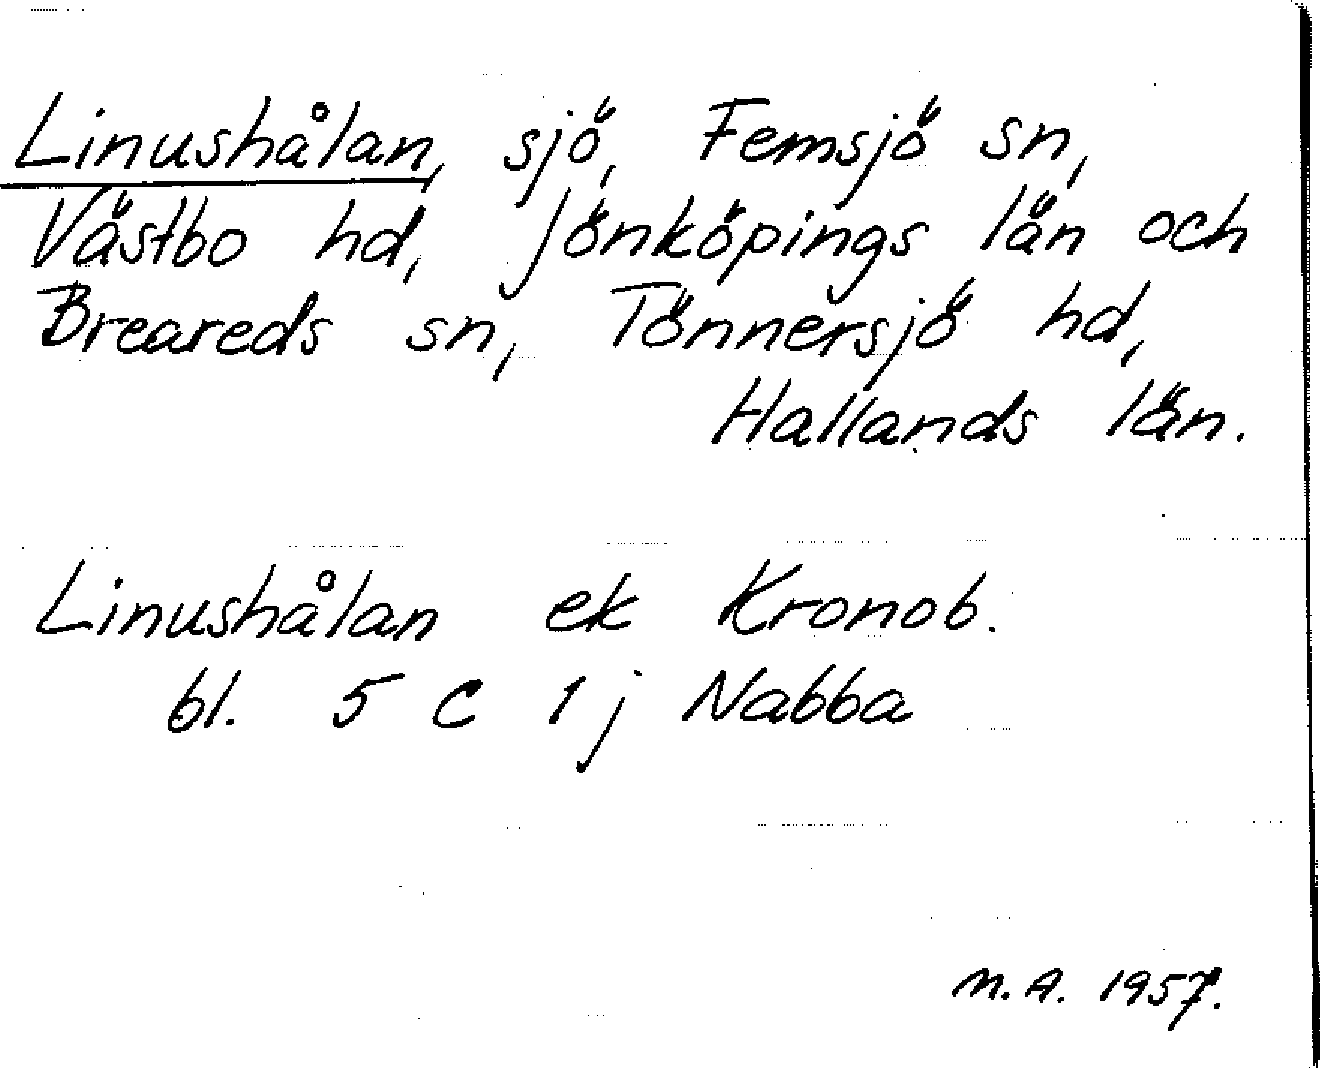 Linushålan, sjö, Femsjö sn,
Västbo hd, Jönköpings län och
Breareds sn, Tönnersjö hd,
Hallands län.
Linushålan ek Kronob.
bl. 5 C 1 j Nabba
M.A. 1957.